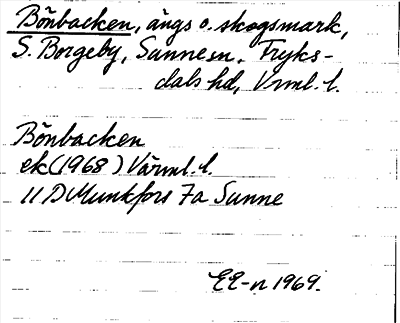 Bönbacken, ängs o. skogsmark,
S. Borgeby, Sunne sn. Fryks-
dals hd, Vrml. l.
Bönbacken
ek (1968) Värml. l.
11 D Munkfors 7a Sunne
EE-n 1969.